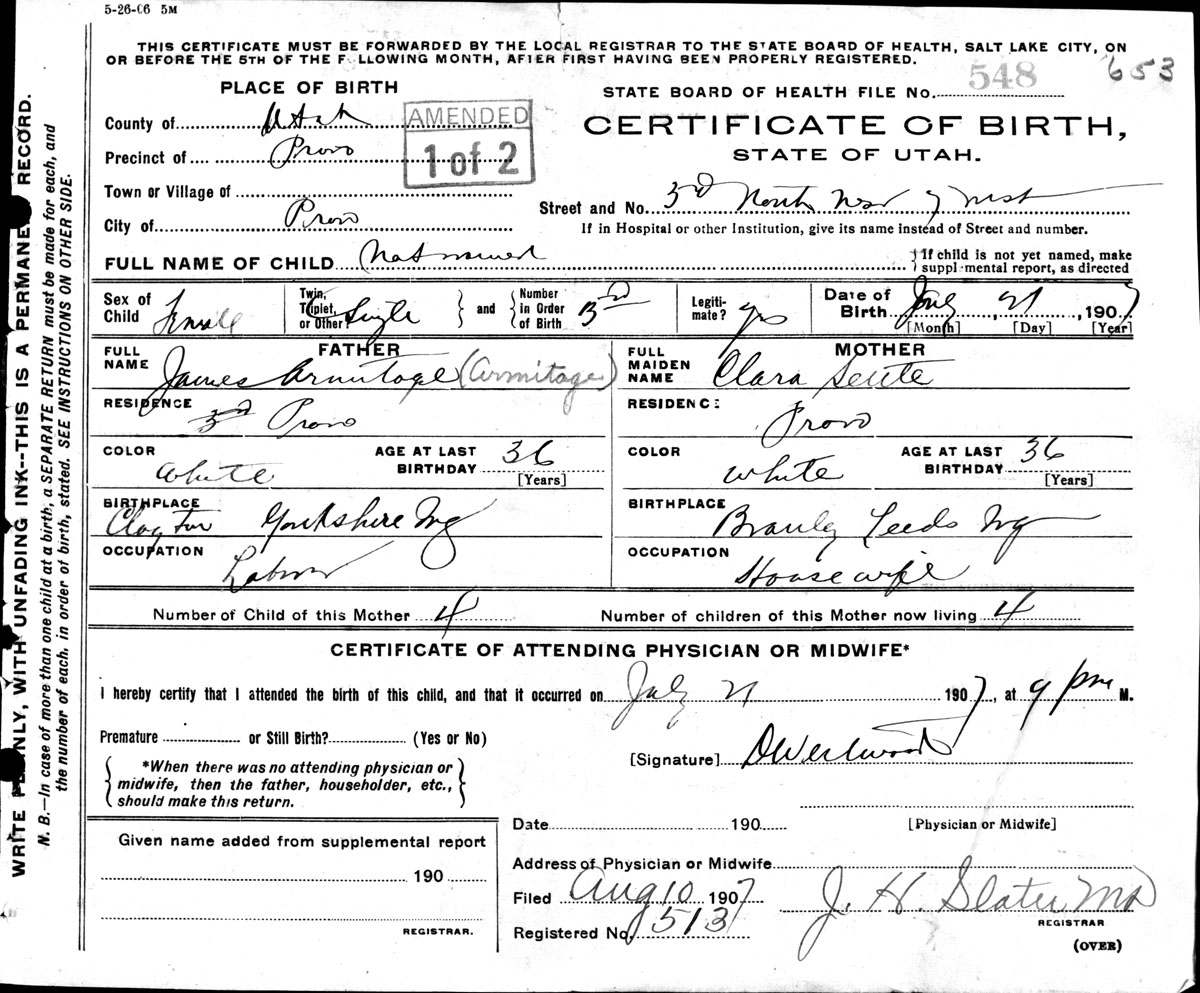 5-26-06 5M
THIS CERTIFICATE MUST BE FORWARDED BY THE LOCAL REGISTRAR TO THE STATE BOARD OF HEALTH, SALT LAKE CITY, ON
OR BEFORE THE 5TH OF THE F LLOWING MONTH, AFTER FIRST HAVING BEEN PROPERLY REGISTERED.
653
PLACE OF BIRTH
STATE BOARD OF HEALTH FILE No. 548
County of Utah
AMENDED
1 of 2
CERTIFICATE OF BIRTH,
STATE OF UTAH.
Precinct of Provo
Town or Village of
City of Provo
Street and No. 3rd North West
If in Hospital or other Institution, give its name instead of Street and number.
FULL NAME OF CHILD Not named
If child is not yet named, make
suppl mental report, as directed
Sex of Child Female
Twin, Triplet, or Other? Single
and
Number in Order of Birth 3rd
Legiti-mate? yes
Date of Birth July 21, 1907
[Month] [Day] [Year]
FATHER
FULL NAME James Armitage (Armitage)
RESIDENCE 3rd Provo
COLOR White
AGE AT LAST BIRTHDAY 36
[Years]
BIRTHPLACE Clayton Yorkshire Eng
OCCUPATION Labour
MOTHER
FULL MAIDEN NAME Clara
RESIDENCE Provo
COLOR White
AGE AT LAST BIRTHDAY 36
[Years]
BIRTHPLACE Leeds Eng
OCCUPATION Housewife
Number of Child of this Mother 4
Number of children of this Mother now living 4
CERTIFICATE OF ATTENDING PHYSICIAN OR MIDWIFE*
I hereby certify that I attended the birth of this child, and that it occurred on July 21 1907, at 9 pm M.
Premature or Still Birth? (Yes or No)
[Signature] D Westwood
*When there was no attending physician or
midwife, then the father, householder, etc.,
should make this return.
Date 190
[Physician or Midwife]
Given name added from supplemental report
190
REGISTRAR.
Address of Physician or Midwife
Filed Aug 10 1907
J. H. Slater MD
REGISTRAR
Registered No. 513
(OVER)
WRITE PL NLY, WITH UNFADING INK--THIS IS A PERMANE RECORD.
N. B.—In case of more than one child at a birth, a SEPARATE RETURN must be made for each, and
the number of each. in order of birth, stated. SEE INSTRUCTIONS ON OTHER SIDE.